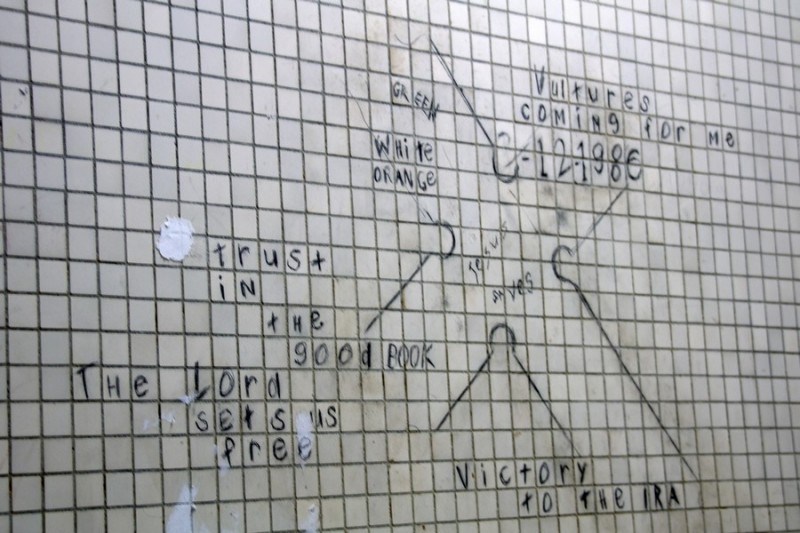 GREEN
WHitE
ORANGE
Vultures
COMING for me
-12-198
trust
iN
tHe
gOOd BOOK
THe LOrd
sets us
free
saves
Victory
tO tHe IRA